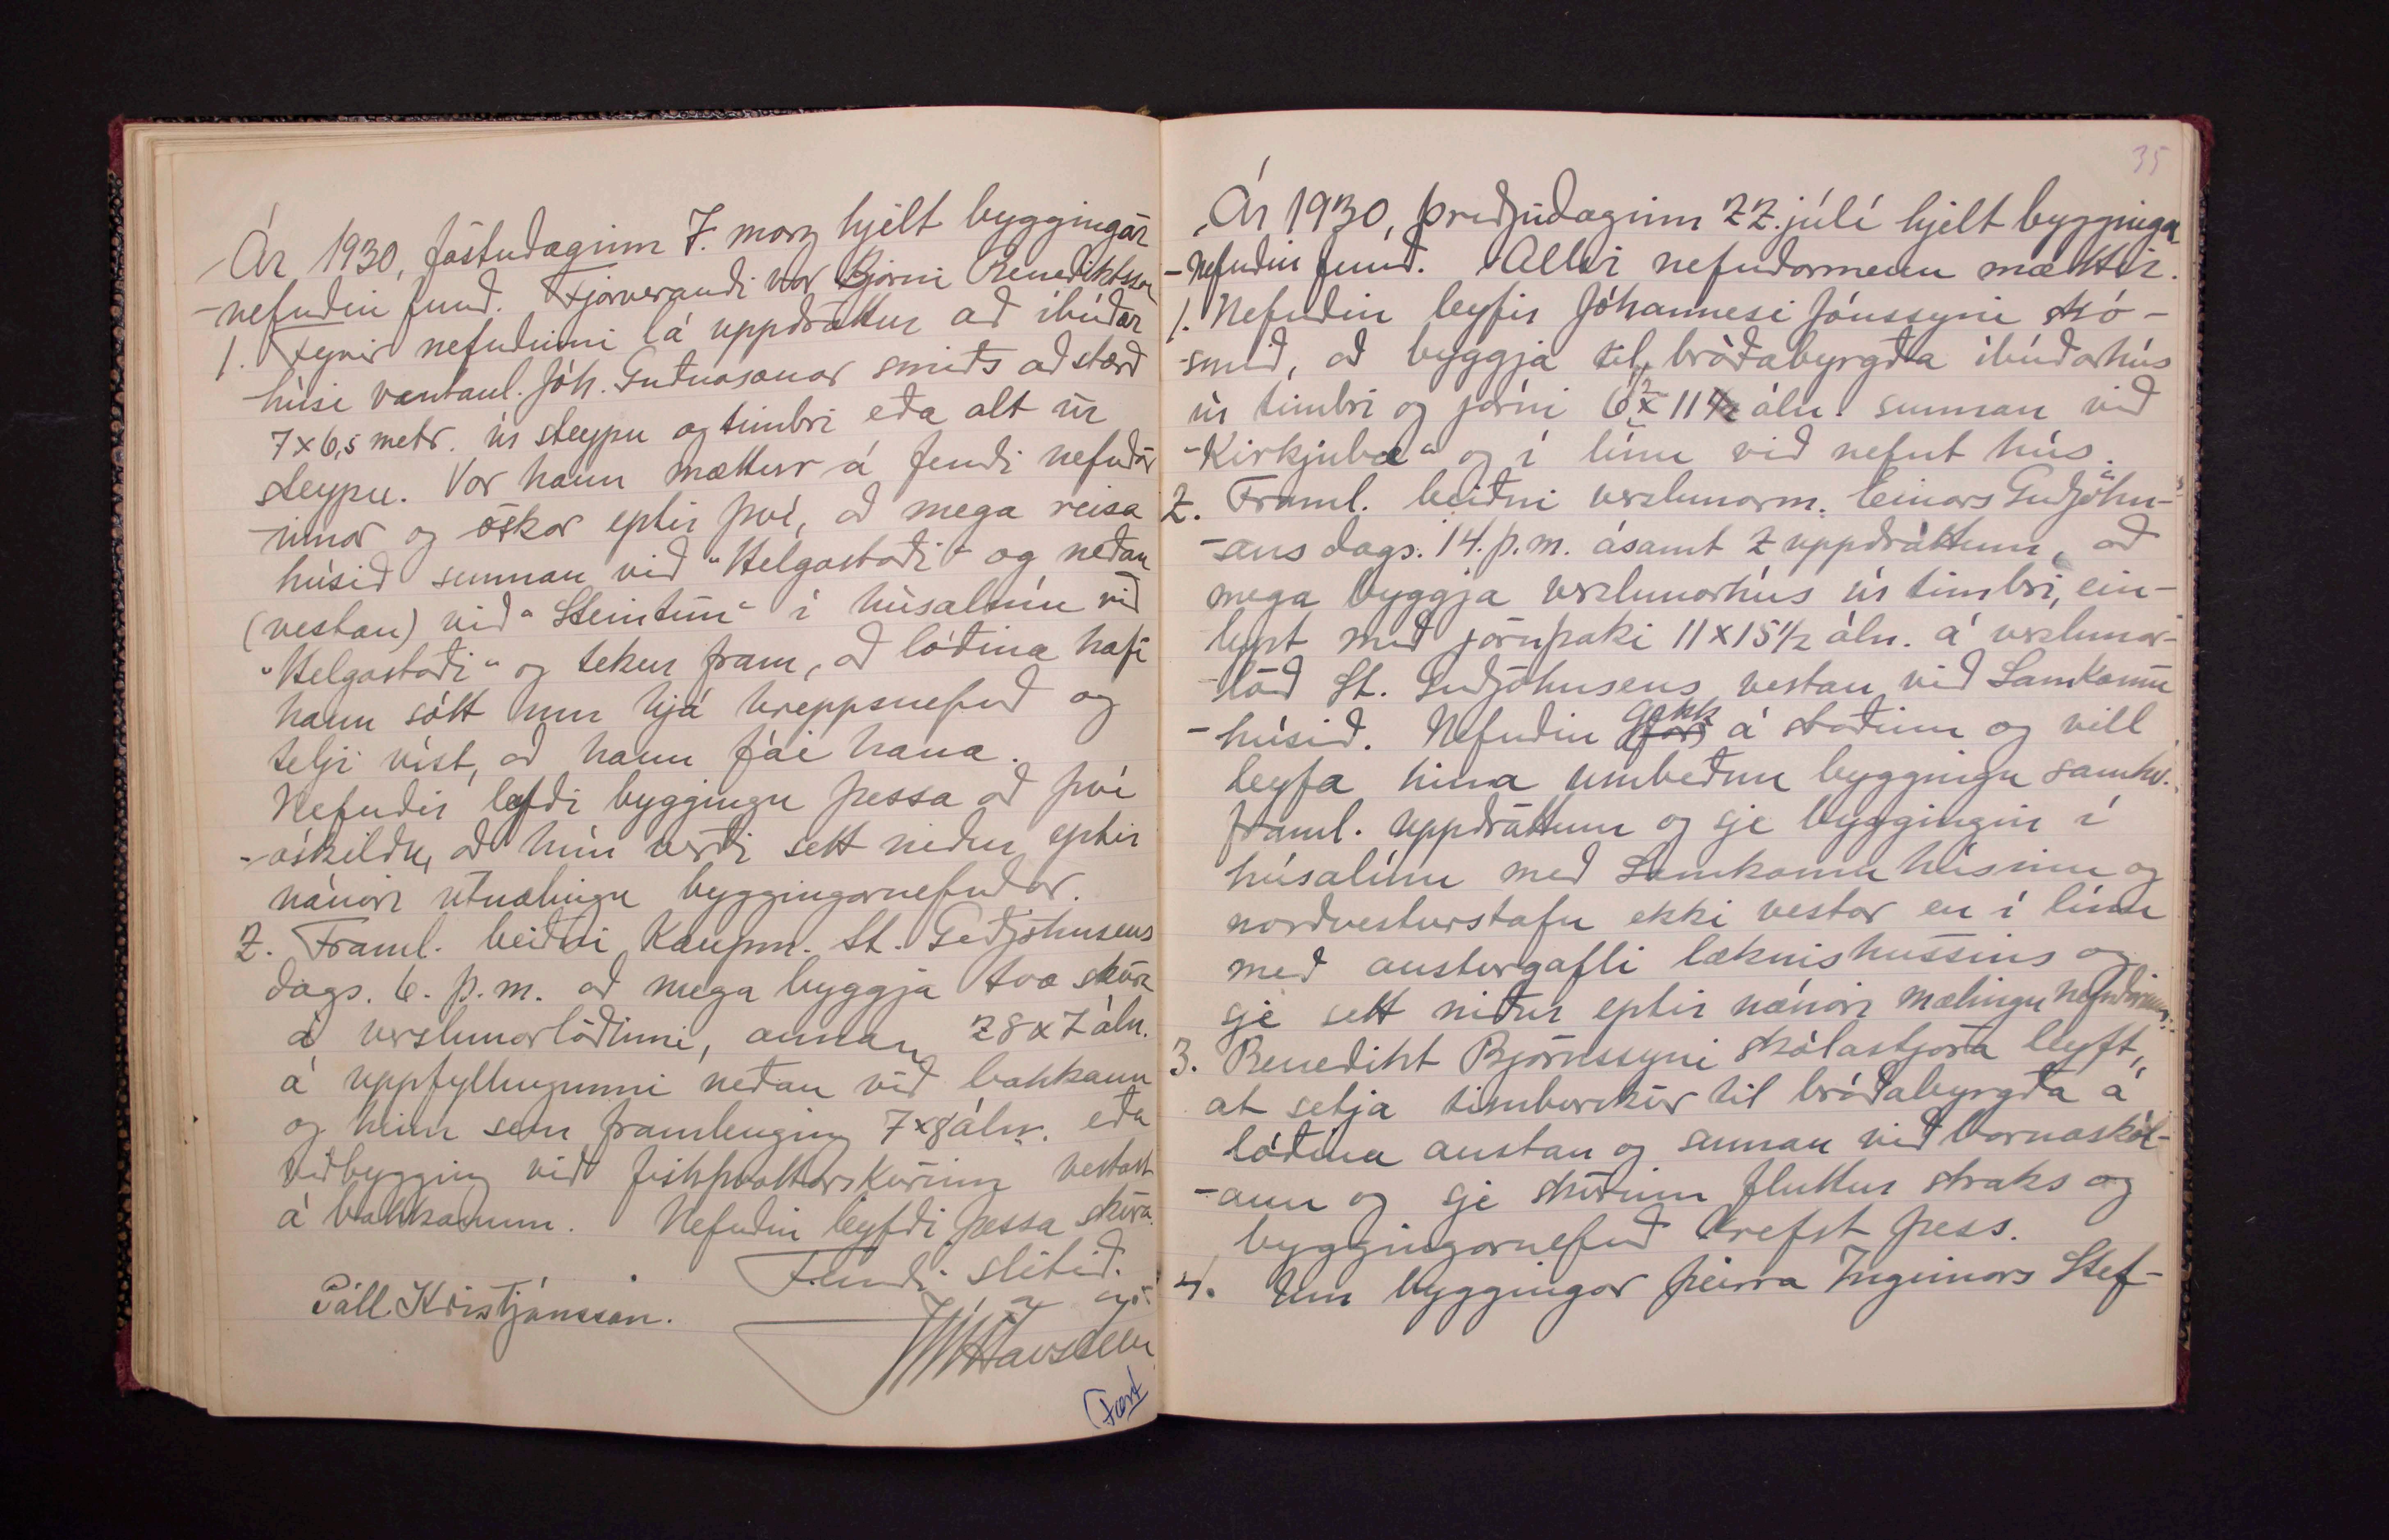 Ár 1930, föstudaginn 7. marz hjelt byggingar
-nefndin fund. Fjarverandi var Björn Benediktsson
1. Fyrir nefndinni lá uppdráttur að íbúðar
húsi væntanl. Jóh. Guðnasonar smiðs að stærð
7x6,5 metr. úr steypu og timbri eða alt úr
steypu. Var hann mættur á fundi nefndar
-innar og óskar eptir því, að mega reisa
húsið sunnan við "Helgastaði" og neðan
(vestan) við "Steintún" í húsalínu við
"Helgastaði" og tekur fram, að lóðina hafi
hann sótt um hjá hreppsnefnd og
telji víst, að hann fái hana.
Nefndin leyfði byggingu þessa að því
-áskildu, að hún verði sett niður eptir
nánari útmælingu byggingarnefndar.
2. Framl. beiðni Kaupm. St. Guðjohnsens
dags. 6. þ.m. að mega byggja tvo skúra
á verslunarlóðinni, annan 28x7 áln.
á uppfyllingunni neðan við bakkann
og hinn sem framlenging 7x8 áln. eða
viðbygging við fiskþvottarskúrinn vestast
á bakkanum. Nefndin leyfði þessa skúra.
Fundi slitið.
Páll Kristjánsson.
JHavsteen
Fært
35
Ár 1930, þriðjudaginn 22. júlí hjelt bygginga
-nefndin fund. Allir nefndarmenn mættir.
1. Nefndin leyfir Jóhannesi Jónssyni skó-
-smið, að byggja til bráðabyrgða íbúðarhús
úr timbri og járni 6½ x 11½ áln. sunnan við
"Kirkjubæ" og í línu við nefnt hús.
2. Framl. beiðni verzlunarm. Einars Guðjohn-
-sens dags. 14. þ.m. ásamt 2 uppdráttum, að
mega byggja verzlunarhús úr timbri, ein-
lyft með járnþaki 11x15½ áln. á verzlunar-
-lóð St. Guðjohnsens vestan við Samkomu
-húsið. Nefndin gekk á staðinn og vill
leyfa hina umbeðnu byggingu samkv.
framl. uppdráttum og sje byggingin í
húsalínu með Samkomuhúsinu og
norðvesturstafn ekki vestar en í línu
með austurgafli læknishússins og
sje sett niður eptir nánari mælingu nefndarinnar.
3. Benedikt Björnssyni skólastjóra leyft,
at setja timburskúr til bráðabyrgða á
lóðina austan og sunnan við barnaskól-
-ann og sje skúrinn fluttur straks og
byggingarnefnd krefst þess.
4. Um byggingar þeirra Ingimars Stef-